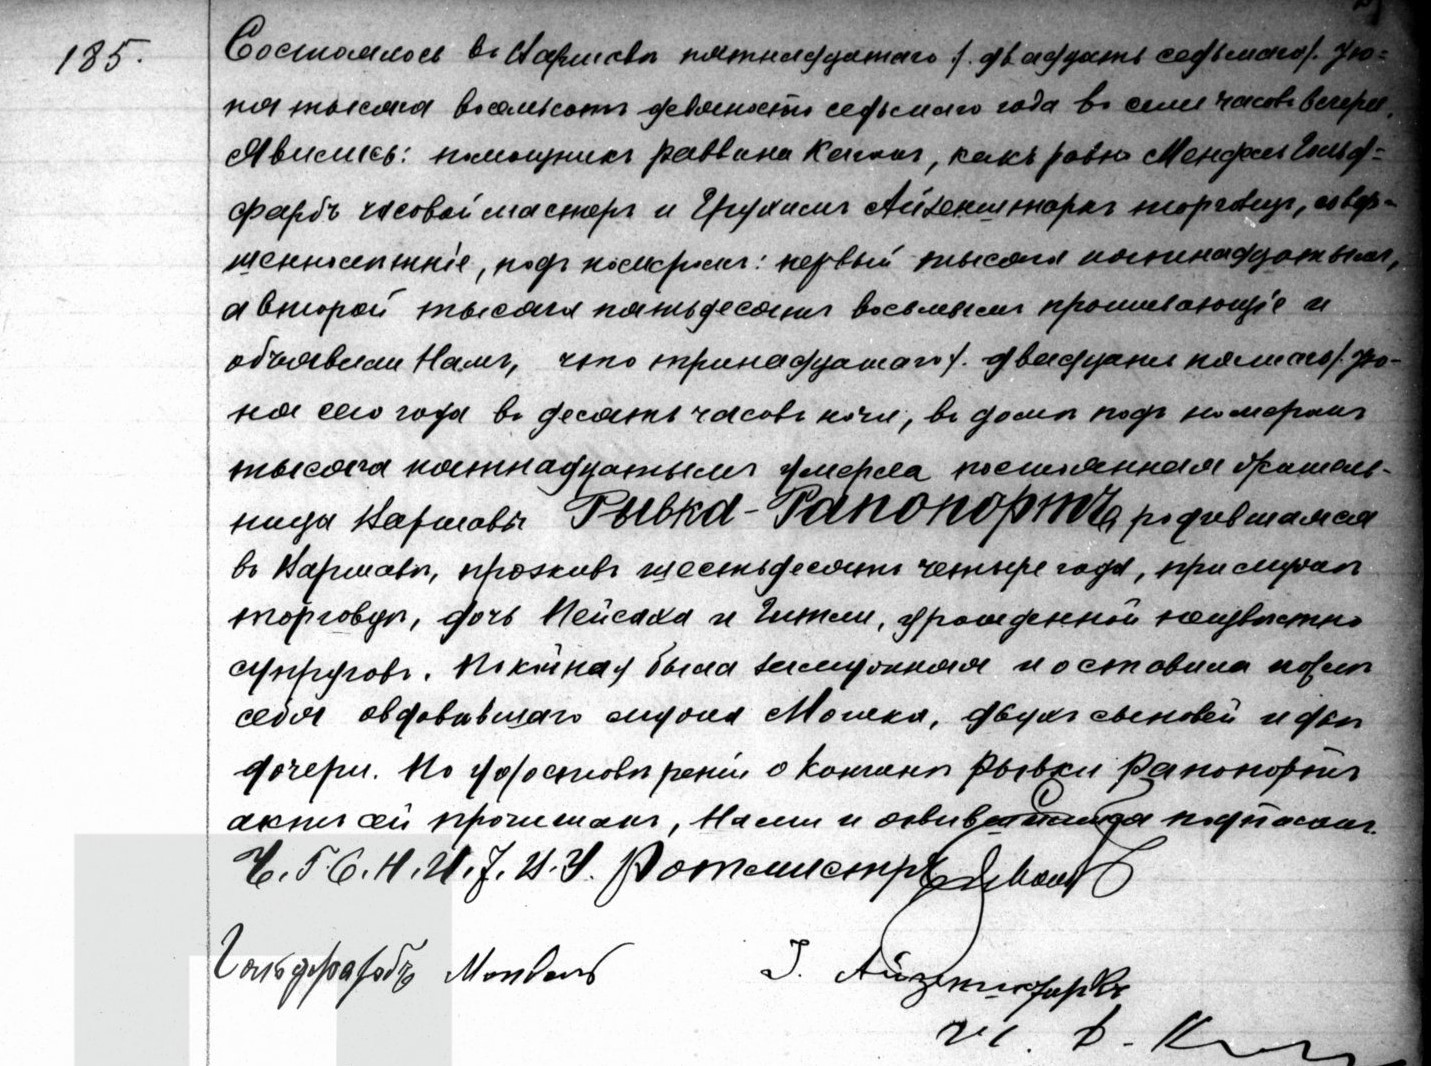 185.
Состоялось въ Варшавѣ пятнадцатаго /. двадцать седьмаго /. Iю=
ня тысяча восемьсотъ девяносто седьмаго года въ семь часовъ вечера.
Явились: помощникъ раввина Каганъ, какъ равно Мендель Гольд=
фарбъ часовой мастеръ и Айзенштаркъ торговцъ, совер=
шеннолѣтніе, подъ номеромъ: первый тысяча пятнадцатымъ,
а второй тысяча пятьдесятъ восьмымъ проживающіе и
объявили Намъ, что тринадцатаго /. двадцать пятаго /. Iю=
ня сего года въ десять часовъ ночи, въ домѣ подъ номеромъ
тысяча пятнадцатымъ умерла постоянная житель-
ница Варшавы Рывка-Рапопортъ, родившаяся
въ Варшавѣ, проживъ шестьдесятъ четыре года, при мужѣ
торговцѣ, дочь Пейсаха и Гитли, урожденной неизвѣстно
супруговъ. Покойная была замужняя и оставила послѣ
себя овдовѣвшаго мужа Мошка, двухъ сыновей и двѣ
дочери. По удостовѣреніи о кончинѣ Рывки Рапопортъ
актъ сей прочитанъ, Нами и явившимися подписанъ.
Ч. Г. С. Н. И. У. Ротмистръ
Гольдфарбъ Мендель
I. Айзенштаркъ